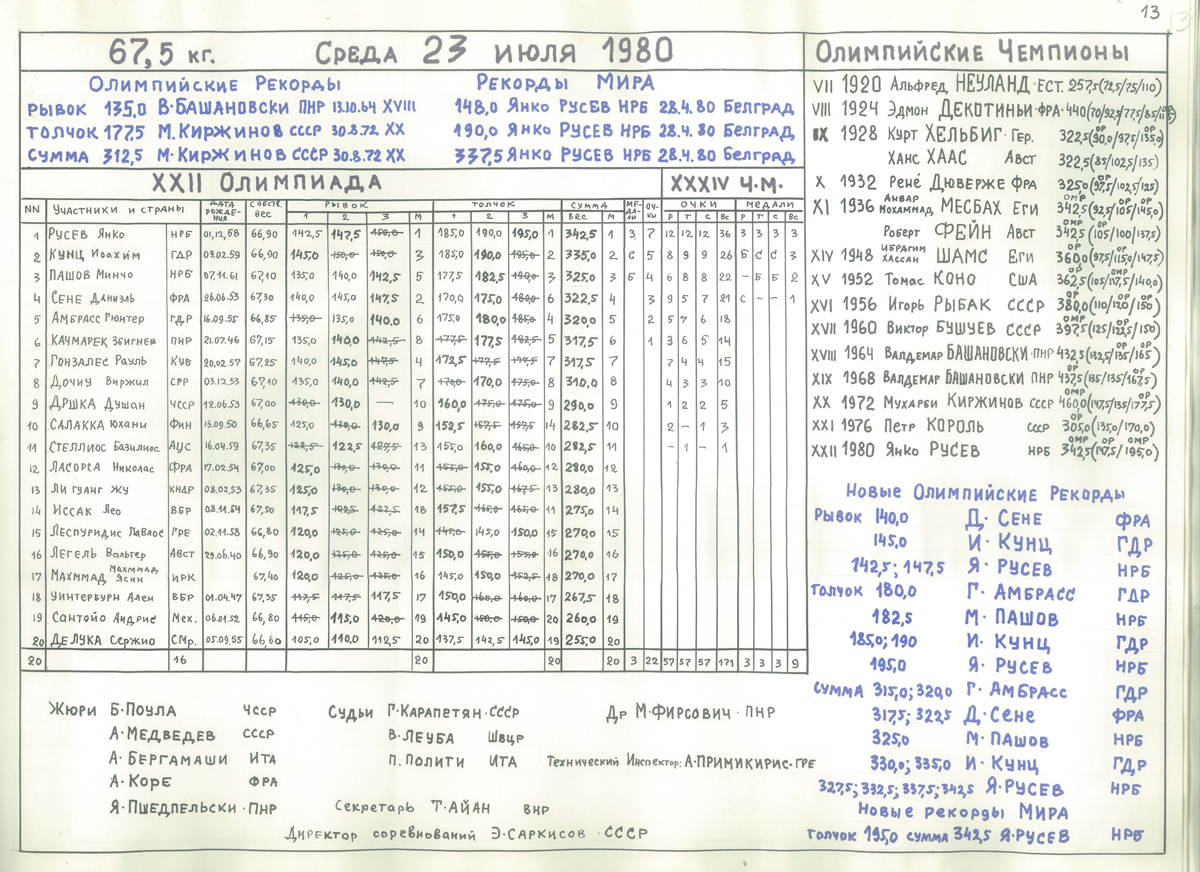 13
67,5 кг. Среда 23 июля 1980
Олимпийские Рекорды Рекорды Мира
Рывок 135,0 В. Башановски ПНР 13.10.64 XVIII 148,0 Янко Русев НРБ 28.4.80 Белград
Толчок 177,5 М. Киржинов СССР 30.8.72 XX 190,0 Янко Русев НРБ 28.4.80 Белград
Сумма 312,5 М. Киржинов СССР 30.8.72 XX 337,5 Янко Русев НРБ 28.4.80 Белград
XXII Олимпиада XXXIV Ч.М.
NN Участники и страны Дата рождения Собств. вес Рывок Толчок Сумма Медали Очки Очки Медали
1 2 3 М 1 2 3 М Вес М Р Т С Вс Р Т С Вс
1 Русев Янко НРБ 01.12.58 66,90 142,5 147,5 150,0 1 185,0 190,0 195,0 1 342,5 1 3 7 12 12 12 36 3 3 3 3
2 Кунц Иоахим ГДР 09.02.59 66,90 145,0 150,0 150,0 3 185,0 190,0 195,0 2 335,0 2 С 5 8 9 9 26 Б С С 3
3 Пашов Минчо НРБ 07.11.61 67,10 135,0 140,0 142,5 5 177,5 182,5 190,0 3 325,0 3 Б 4 6 8 8 22 – Б Б 2
4 Сене Даниэль ФРА 26.06.53 67,30 140,0 145,0 147,5 2 170,0 175,0 180,0 6 322,5 4 3 9 5 7 21 С – – 1
5 Амбрасс Гюнтер ГДР 16.09.55 66,85 135,0 135,0 140,0 6 175,0 180,0 185,0 4 320,0 5 2 5 7 6 18
6 Качмарек Збигнев ПНР 21.07.46 67,15 135,0 140,0 142,5 8 177,5 177,5 182,5 5 317,5 6 1 3 6 5 14
7 Гонзалес Рауль Куб 20.02.57 67,25 140,0 145,0 147,5 4 172,5 177,5 177,5 7 317,5 7 7 4 4 15
8 Дочиу Виржил СРР 03.12.53 67,10 135,0 140,0 142,5 7 170,0 170,0 175,0 8 310,0 8 4 3 3 10
9 Дршка Душан ЧССР 12.06.53 67,00 130,0 130,0 — 10 160,0 175,0 175,0 9 290,0 9 1 2 2 5
10 Салакка Юхани Фин 13.09.50 66,65 125,0 130,0 130,0 9 152,5 157,5 157,5 14 282,5 10 2 – 1 3
11 Стеллиос Базилиос Аус 16.04.59 67,35 122,5 122,5 127,5 13 155,0 160,0 165,0 10 282,5 11 – 1 – 1
12 Ласорса Николас Фра 17.02.54 67,00 125,0 130,0 130,0 11 155,0 155,0 160,0 12 280,0 12
13 Ли Гуанг Жу КНДР 08.02.53 67,35 125,0 130,0 130,0 12 155,0 155,0 167,5 13 280,0 13
14 Иссак Лео ВБР 08.11.54 67,50 117,5 122,5 122,5 18 157,5 165,0 165,0 11 275,0 14
15 Леспуридис Павлос Гре 02.11.58 66,80 120,0 125,0 125,0 14 145,0 145,0 150,0 15 270,0 15
16 Легель Вальтер Авст 29.06.40 66,90 120,0 125,0 125,0 15 150,0 155,0 155,0 16 270,0 16
17 Махммад Махммад Ясин Ирк 67,40 120,0 125,0 125,0 16 145,0 150,0 152,5 18 270,0 17
18 Уинтербурн Ален ВБР 01.04.47 67,35 117,5 117,5 117,5 17 150,0 160,0 160,0 17 267,5 18
19 Сантойо Андрис Мех. 06.01.52 66,80 115,0 115,0 120,0 19 145,0 150,0 150,0 20 260,0 19
20 Де Лука Сержио СМр. 05.09.55 66,60 105,0 110,0 112,5 20 137,5 142,5 145,0 19 255,0 20
20 16 20 20 20 3 22 57 57 57 171 3 3 3 9
Жюри Б. Поула ЧССР Судьи Г. Карапетян. СССР Др М. Фирсович. ПНР
А. Медведев СССР В. Леуба Швцр
А. Бергамаши ИТА П. Полити ИТА Технический Инспектор: А. Примикирис. ГРЕ
А. Коре ФРА
Я. Пшедпельски. ПНР Секретарь Т. Айан ВНР
Директор соревнований Э. Саркисов. СССР
Олимпийские Чемпионы
VII 1920 Альфред Неуланд. Ест. 257,5 (72,5/75/110)
VIII 1924 Эдмон Декотиньи. Фра. 440 (70/92,5/77,5/85/115)
IX 1928 Курт Хельбиг. Гер. 322,5 ОР (90,0/97,5/135,0) ОР
Ханс Хаас Авст 322,5 (85/102,5/135)
X 1932 Рене Дюверже Фра 325,0 ОР (97,5/102,5/125)
XI 1936 Анвар Мохаммад Месбах Еги 342,5 ОМР (92,5/105/145,0) ОР
Роберт Фейн Авст 342,5 ОМР (105/100/137,5)
XIV 1948 Ибрагим Хассан Шамс Еги 360,0 ОР (97,5/115,0/147,5)
XV 1952 Томас Коно США 362,5 ОР (105/117,5/140,0) ОМР
XVI 1956 Игорь Рыбак СССР 380,0 ОР (110/120/150) ОР
XVII 1960 Виктор Бушуев СССР 397,5 ОМР (125/122,5/150) ОР
XVIII 1964 Валдемар Башановски. ПНР 432,5 (132,5/135/165)
XIX 1968 Валдемар Башановски ПНР 437,5 ОР (135/135/167,5) ОР
XX 1972 Мухарби Киржинов СССР 460,0 ОМР (147,5/135/177,5) ОР
XXI 1976 Петр Король СССР 305,0 ОР (135,0/170,0)
XXII 1980 Янко Русев НРБ 342,5 ОМР (147,5/195,0) ОР ОМР
Новые Олимпийские Рекорды
Рывок 140,0 Д. Сене ФРА
145,0 И. Кунц ГДР
142,5; 147,5 Я. Русев НРБ
Толчок 180,0 Г. Амбрасс ГДР
182,5 М. Пашов НРБ
185,0; 190 И. Кунц ГДР
195,0 Я. Русев НРБ
Сумма 315,0; 320,0 Г. Амбрасс ГДР
317,5; 322,5 Д. Сене ФРА
325,0 М. Пашов НРБ
330,0; 335,0 И. Кунц ГДР
327,5; 332,5; 337,5; 342,5 Я. Русев НРБ
Новые рекорды Мира
Толчок 195,0 сумма 342,5 Я. Русев НРБ